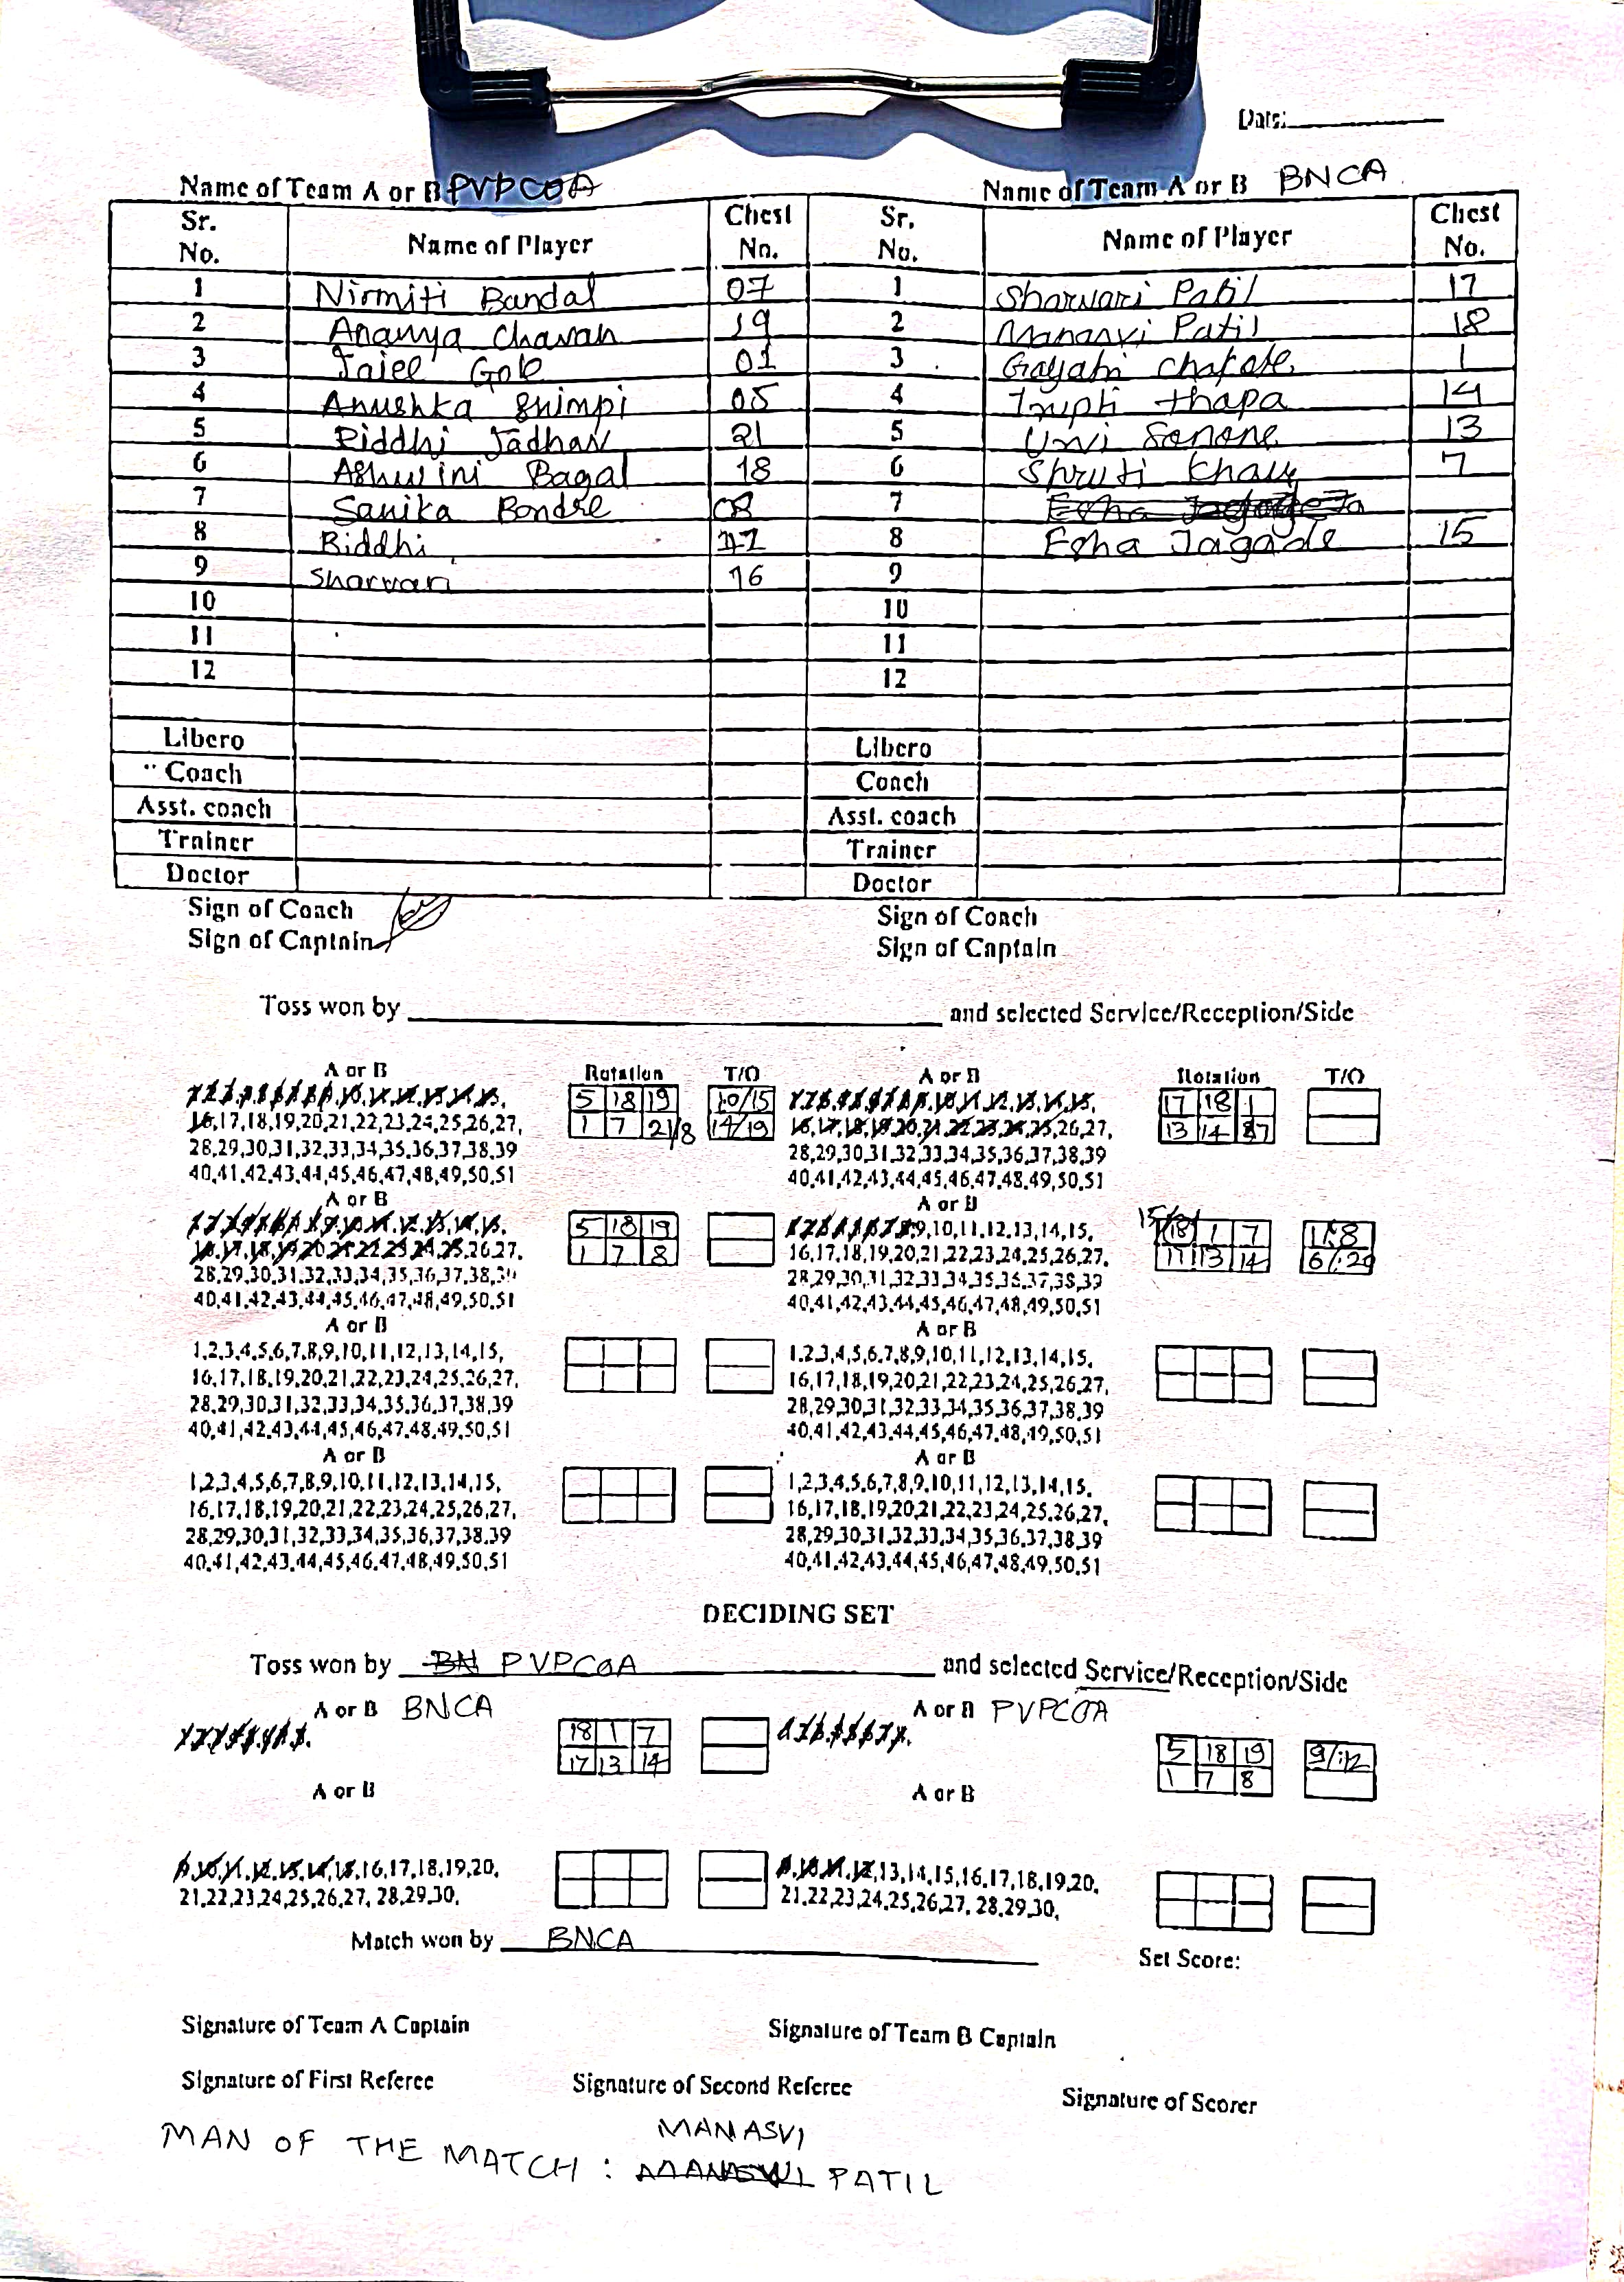 Date:
Name of Team A or B PVPCOA Name of Team A or B BNCA
Sr. No. Name of Player Chest No. Sr. No. Name of Player Chest No.
1 Nirmiti Bandal 07 1 Sharvari Patil 17
2 Ananya Chavan 19 2 Manasvi Patil 18
3 Jaiee Gole 01 3 Gayatri 1
4 Anushka Shimpi 05 4 Trupti Thapa 14
5 Riddhi Jadhav 21 5 Urvi Sonone 13
6 Ashwini Bagal 18 6 Shruti 7
7 Sanika Bondre 08 7
8 Riddhi 8 Esha Jagade 15
9 Sharvari 16 9
10 10
11 11
12 12
Libero Libero
Coach Coach
Asst. coach Asst. coach
Trainer Trainer
Doctor Doctor
Sign of Coach Sign of Coach
Sign of Captain Sign of Captain
Toss won by and selected Service/Reception/Side
A or B Rotation T/O A or B Rotation T/O
1,2,3,4,5,6,7,8,9,10,11,12,13,14,15, 5 18 19 10/15 1,2,3,4,5,6,7,8,9,10,11,12,13,14,15, 17 18 1
16,17,18,19,20,21,22,23,24,25,26,27, 1 7 21/8 14/19 16,17,18,19,20,21,22,23,24,25,26,27, 13 14 7
28,29,30,31,32,33,34,35,36,37,38,39 28,29,30,31,32,33,34,35,36,37,38,39
40,41,42,43,44,45,46,47,48,49,50,51 40,41,42,43,44,45,46,47,48,49,50,51
A or B A or B
1,2,3,4,5,6,7,8,9,10,11,12,13,14,15, 5 18 19 1,2,3,4,5,6,7,8,9,10,11,12,13,14,15, 18 1 7
16,17,18,19,20,21,22,23,24,25,26,27, 1 7 8 16,17,18,19,20,21,22,23,24,25,26,27, 13 14
28,29,30,31,32,33,34,35,36,37,38,39 28,29,30,31,32,33,34,35,36,37,38,39
40,41,42,43,44,45,46,47,48,49,50,51 40,41,42,43,44,45,46,47,48,49,50,51
A or B A or B
1,2,3,4,5,6,7,8,9,10,11,12,13,14,15, 1,2,3,4,5,6,7,8,9,10,11,12,13,14,15,
16,17,18,19,20,21,22,23,24,25,26,27, 16,17,18,19,20,21,22,23,24,25,26,27,
28,29,30,31,32,33,34,35,36,37,38,39 28,29,30,31,32,33,34,35,36,37,38,39
40,41,42,43,44,45,46,47,48,49,50,51 40,41,42,43,44,45,46,47,48,49,50,51
A or B A or B
1,2,3,4,5,6,7,8,9,10,11,12,13,14,15, 1,2,3,4,5,6,7,8,9,10,11,12,13,14,15,
16,17,18,19,20,21,22,23,24,25,26,27, 16,17,18,19,20,21,22,23,24,25,26,27,
28,29,30,31,32,33,34,35,36,37,38,39 28,29,30,31,32,33,34,35,36,37,38,39
40,41,42,43,44,45,46,47,48,49,50,51 40,41,42,43,44,45,46,47,48,49,50,51
DECIDING SET
Toss won by BN PVPCOA and selected Service/Reception/Side
A or B BNCA A or B PVPCOA
1,2,3,4,5,6,7,8, 18 1 7 1,2,3,4,5,6,7,8, 5 18 19 9/12
17 13 14 1 7 8
A or B A or B
9,10,11,12,13,14,15,16,17,18,19,20, 9,10,11,12,13,14,15,16,17,18,19,20,
21,22,23,24,25,26,27, 28,29,30, 21,22,23,24,25,26,27, 28,29,30,
Match won by BNCA Set Score:
Signature of Team A Captain Signature of Team B Captain
Signature of First Referee Signature of Second Referee Signature of Scorer
MAN OF THE MATCH : MANASVI PATIL